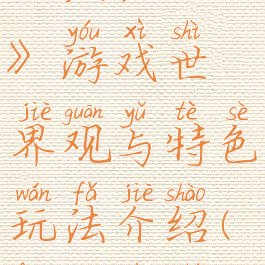 yóu xì shì
》游戏世
jiè guān yǔ tè sè
界观与特色
wán fǎ jiè shào
玩法介绍(